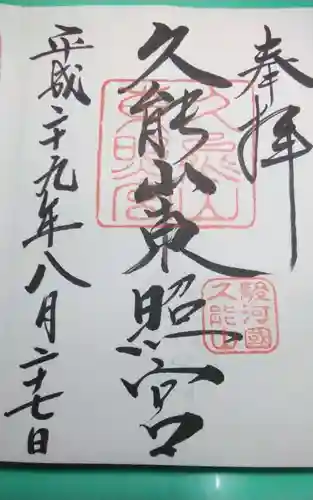 奉拝
久能山東照宮
駿河國
久能山
平成二十九年八月二十七日